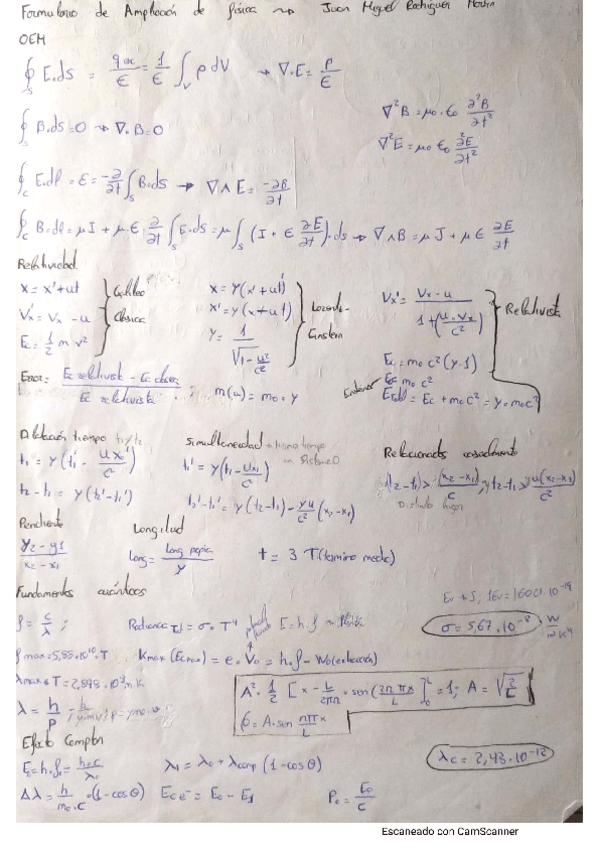 Formulario de Ampliación de física → Juan Miguel Rodríguez
OEM
∮_S E.ds = q_/ε = 1/ε ∫_V ρ dV → ∇.E = ρ/ε
∇²B = μ₀.ε₀ ∂²B/∂t²
∮_S B.ds = 0 → ∇.B = 0
∇²E = μ₀ ε₀ ∂²E/∂t²
∮_C E.dl = ε = -∂/∂t ∫_S B.ds → ∇∧E = -∂B/∂t
∮_C B.dl = μI + μ.ε ∂/∂t ∫_S E.ds = μ∫_S (I + ε ∂E/∂t).ds → ∇∧B = μJ + με ∂E/∂t
Relatividad
x = x' + ut
V'x = Vx - u
Ec = 1/2 m v²
Galileo
Clásica
x = γ(x' + ut')
x' = γ(x + ut)
γ = 1/√(1 - u²/c²)
Lorentz-
Einstein
Vx' = (Vx - u)/(1 + (u.Vx/c²))
Ec = m₀c²(γ-1)
m₀c²
Etotal = Ec + m₀c² = γ.m₀c²
Relativista
Error = (Ec relativista - Ec clásica)/Ec relativista
m(u) = m₀.γ
Dilatación tiempo
t₁ = γ(t₁' - ux'/c²)
t₂ - t₁ = γ(t₂' - t₁')
Simultaneidad → mismo tiempo
en Sistema O
t₁' = γ(t₁ - ux₁/c²)
t₂' - t₁' = γ(t₂-t₁) - γu/c² (x₂-x₁)
Relacionados casualmente
(t₂-t₁) > (x₂-x₁)/c ; t₂-t₁ > u(x₂-x₁)/c²
Distinto lugar
Pendiente
(y₂-y₁)/(x₂-x₁)
Longitud
Long = Long propia/γ
t = 3 T(término medio)
Fundamentos cuánticos
Ev → J, 1Ev = 1'6021.10⁻¹⁹
f = c/λ ;
Radiancia = σ.T⁴
E = h.f
σ = 5,67.10⁻⁸ W/m²K⁴
f max = 5,88.10¹⁰.T
Kmax (Ecmax) = e.V₀ = h.f - W₀(extracción)
λmax T = 2,898.10⁻³ m.K
A².1/2 [x - L/2πn . sen(2nπx/L)]₀ᴸ = 1; A = √(2/L)
λ = h/p
φ = A.sen nπx/L
Efecto Compton
E₀ = h.f₀ = h.c/λ₀
λ₁ = λ₀ + λcomp (1-cosθ)
λc = 2,43.10⁻¹²
Δλ = h/(m₀.c) .(1-cosθ)
Ec e⁻ = E₀ - E₁
P₀ = E₀/c
Escaneado con CamScanner